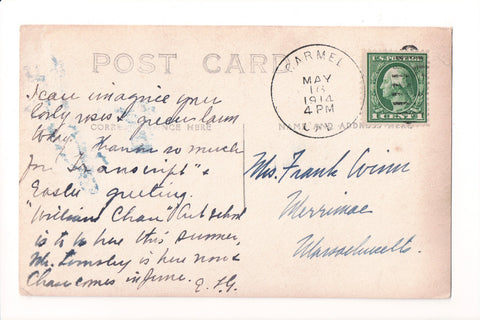 POST CARD
CARMEL
MAY
16
1914
4 PM
CAL
U.S. POSTAGE
1 CENT 1
I can imagine your
lovely roses & green lawn
CORRESPONDENCE HERE
NAME AND ADDRESS HERE
Thanks so much
for "Transcript" &
Easter greeting.
"William Chase" Art school
is to be here this summer,
Mr. is here now &
Chase comes in June.
Mrs. Frank Winn
Merrimac
Massachusetts.